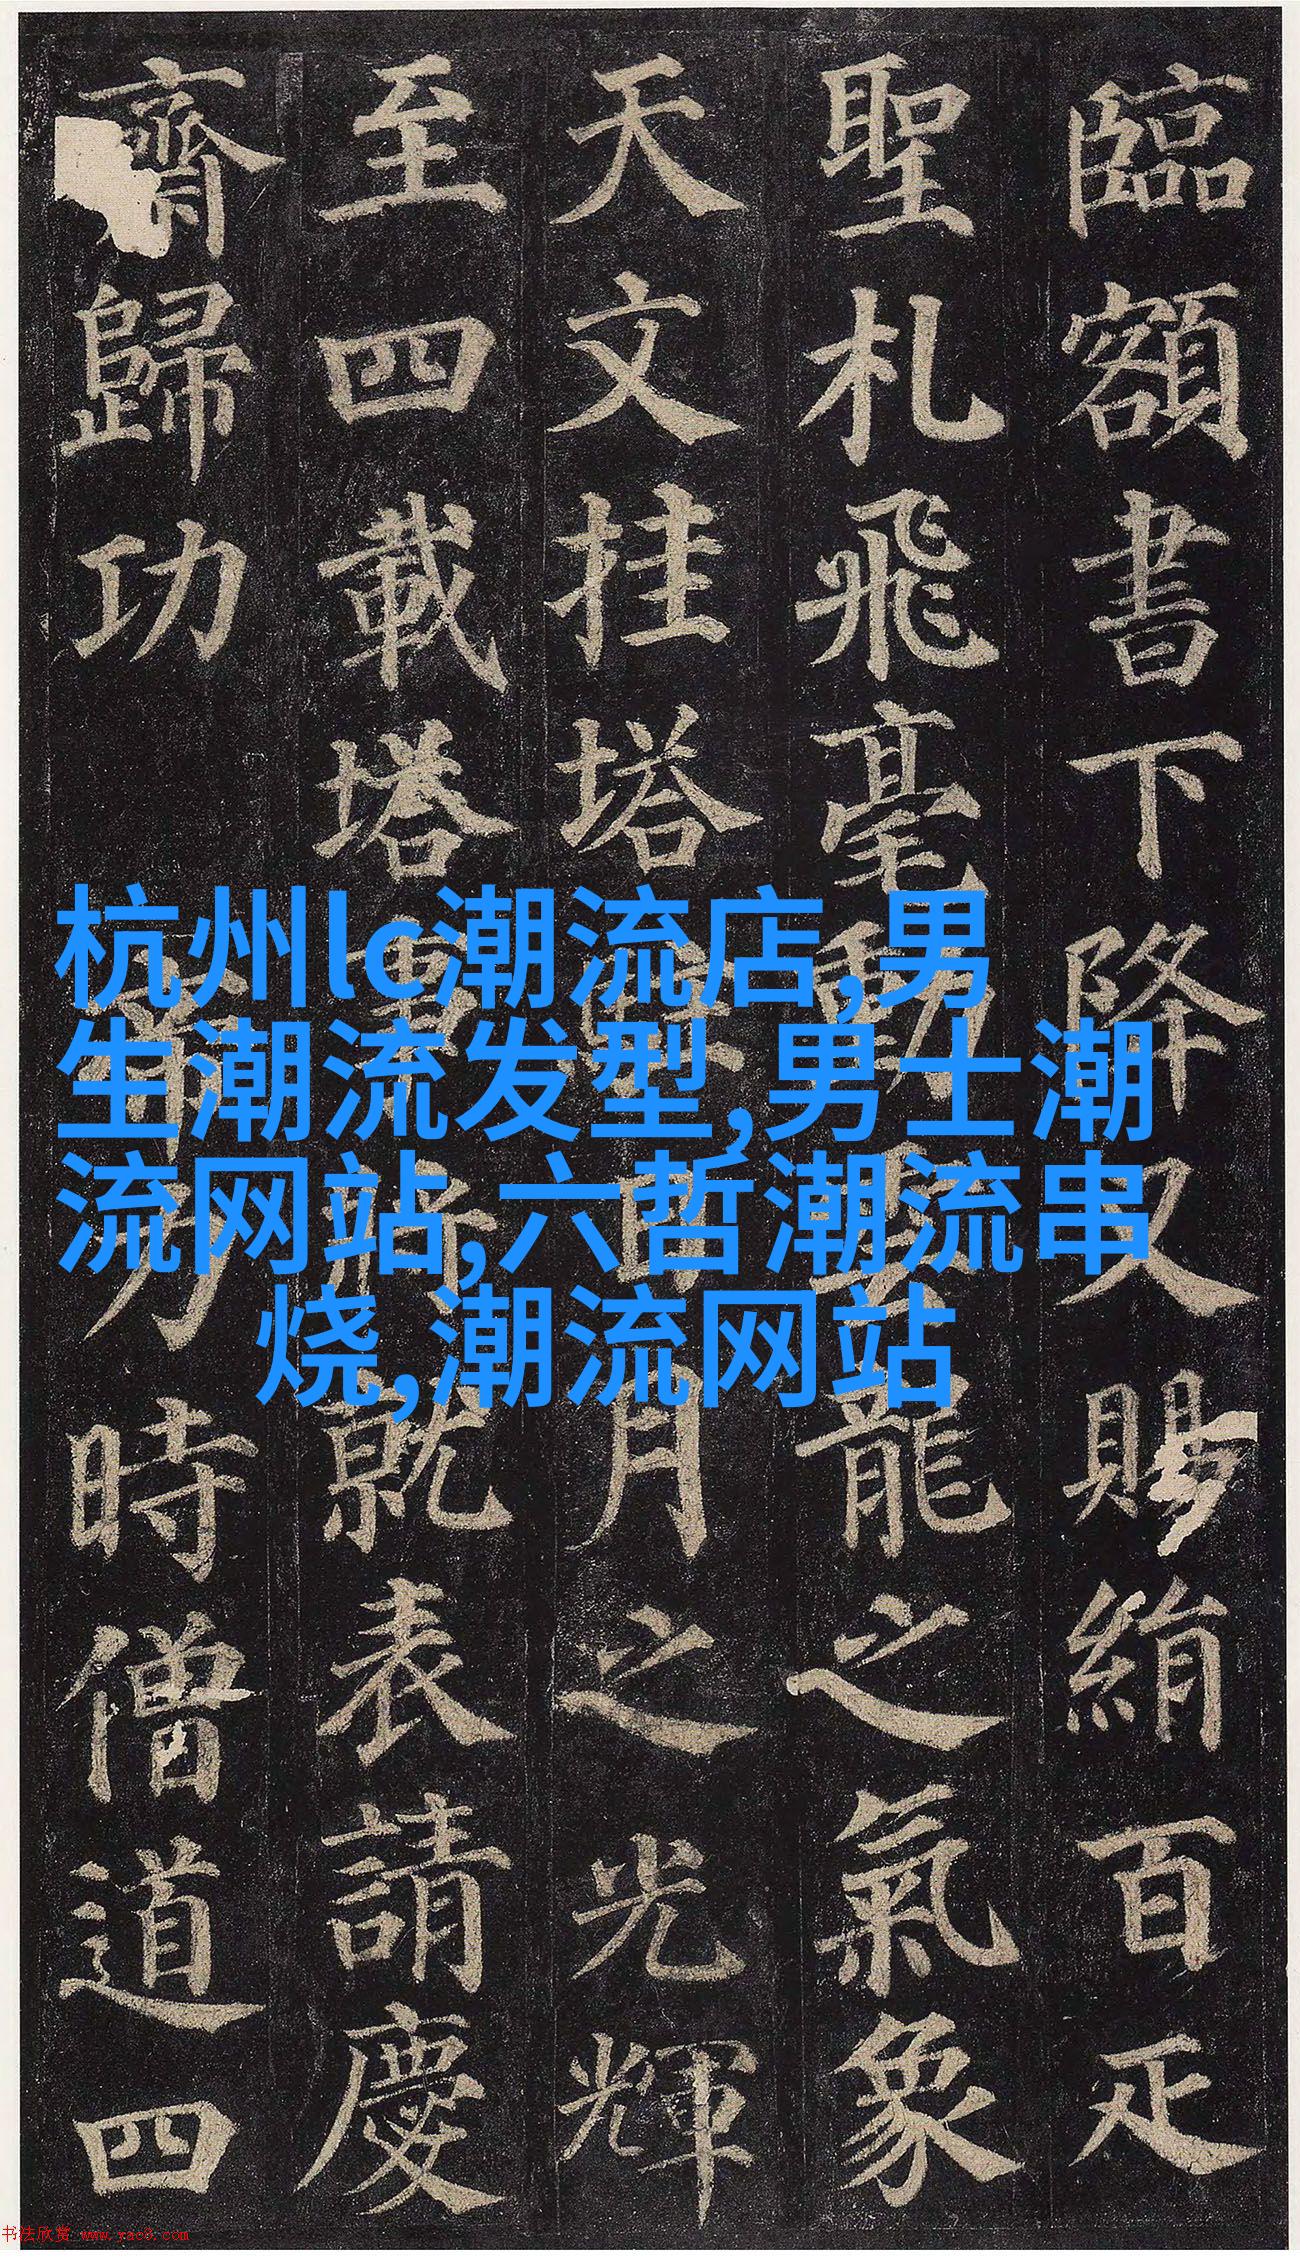 臨額書下降又賜絹百疋
聖札飛毫動雲龍之氣象
天文挂塔駐日月之光輝
至四載塔事將就表請慶
齋歸功 帝力時僧道四
杭州lc潮流店,男
生潮流发型,男士潮
流网站,六哲潮流串
烧,潮流网站
书法欣赏 www.yac8.com